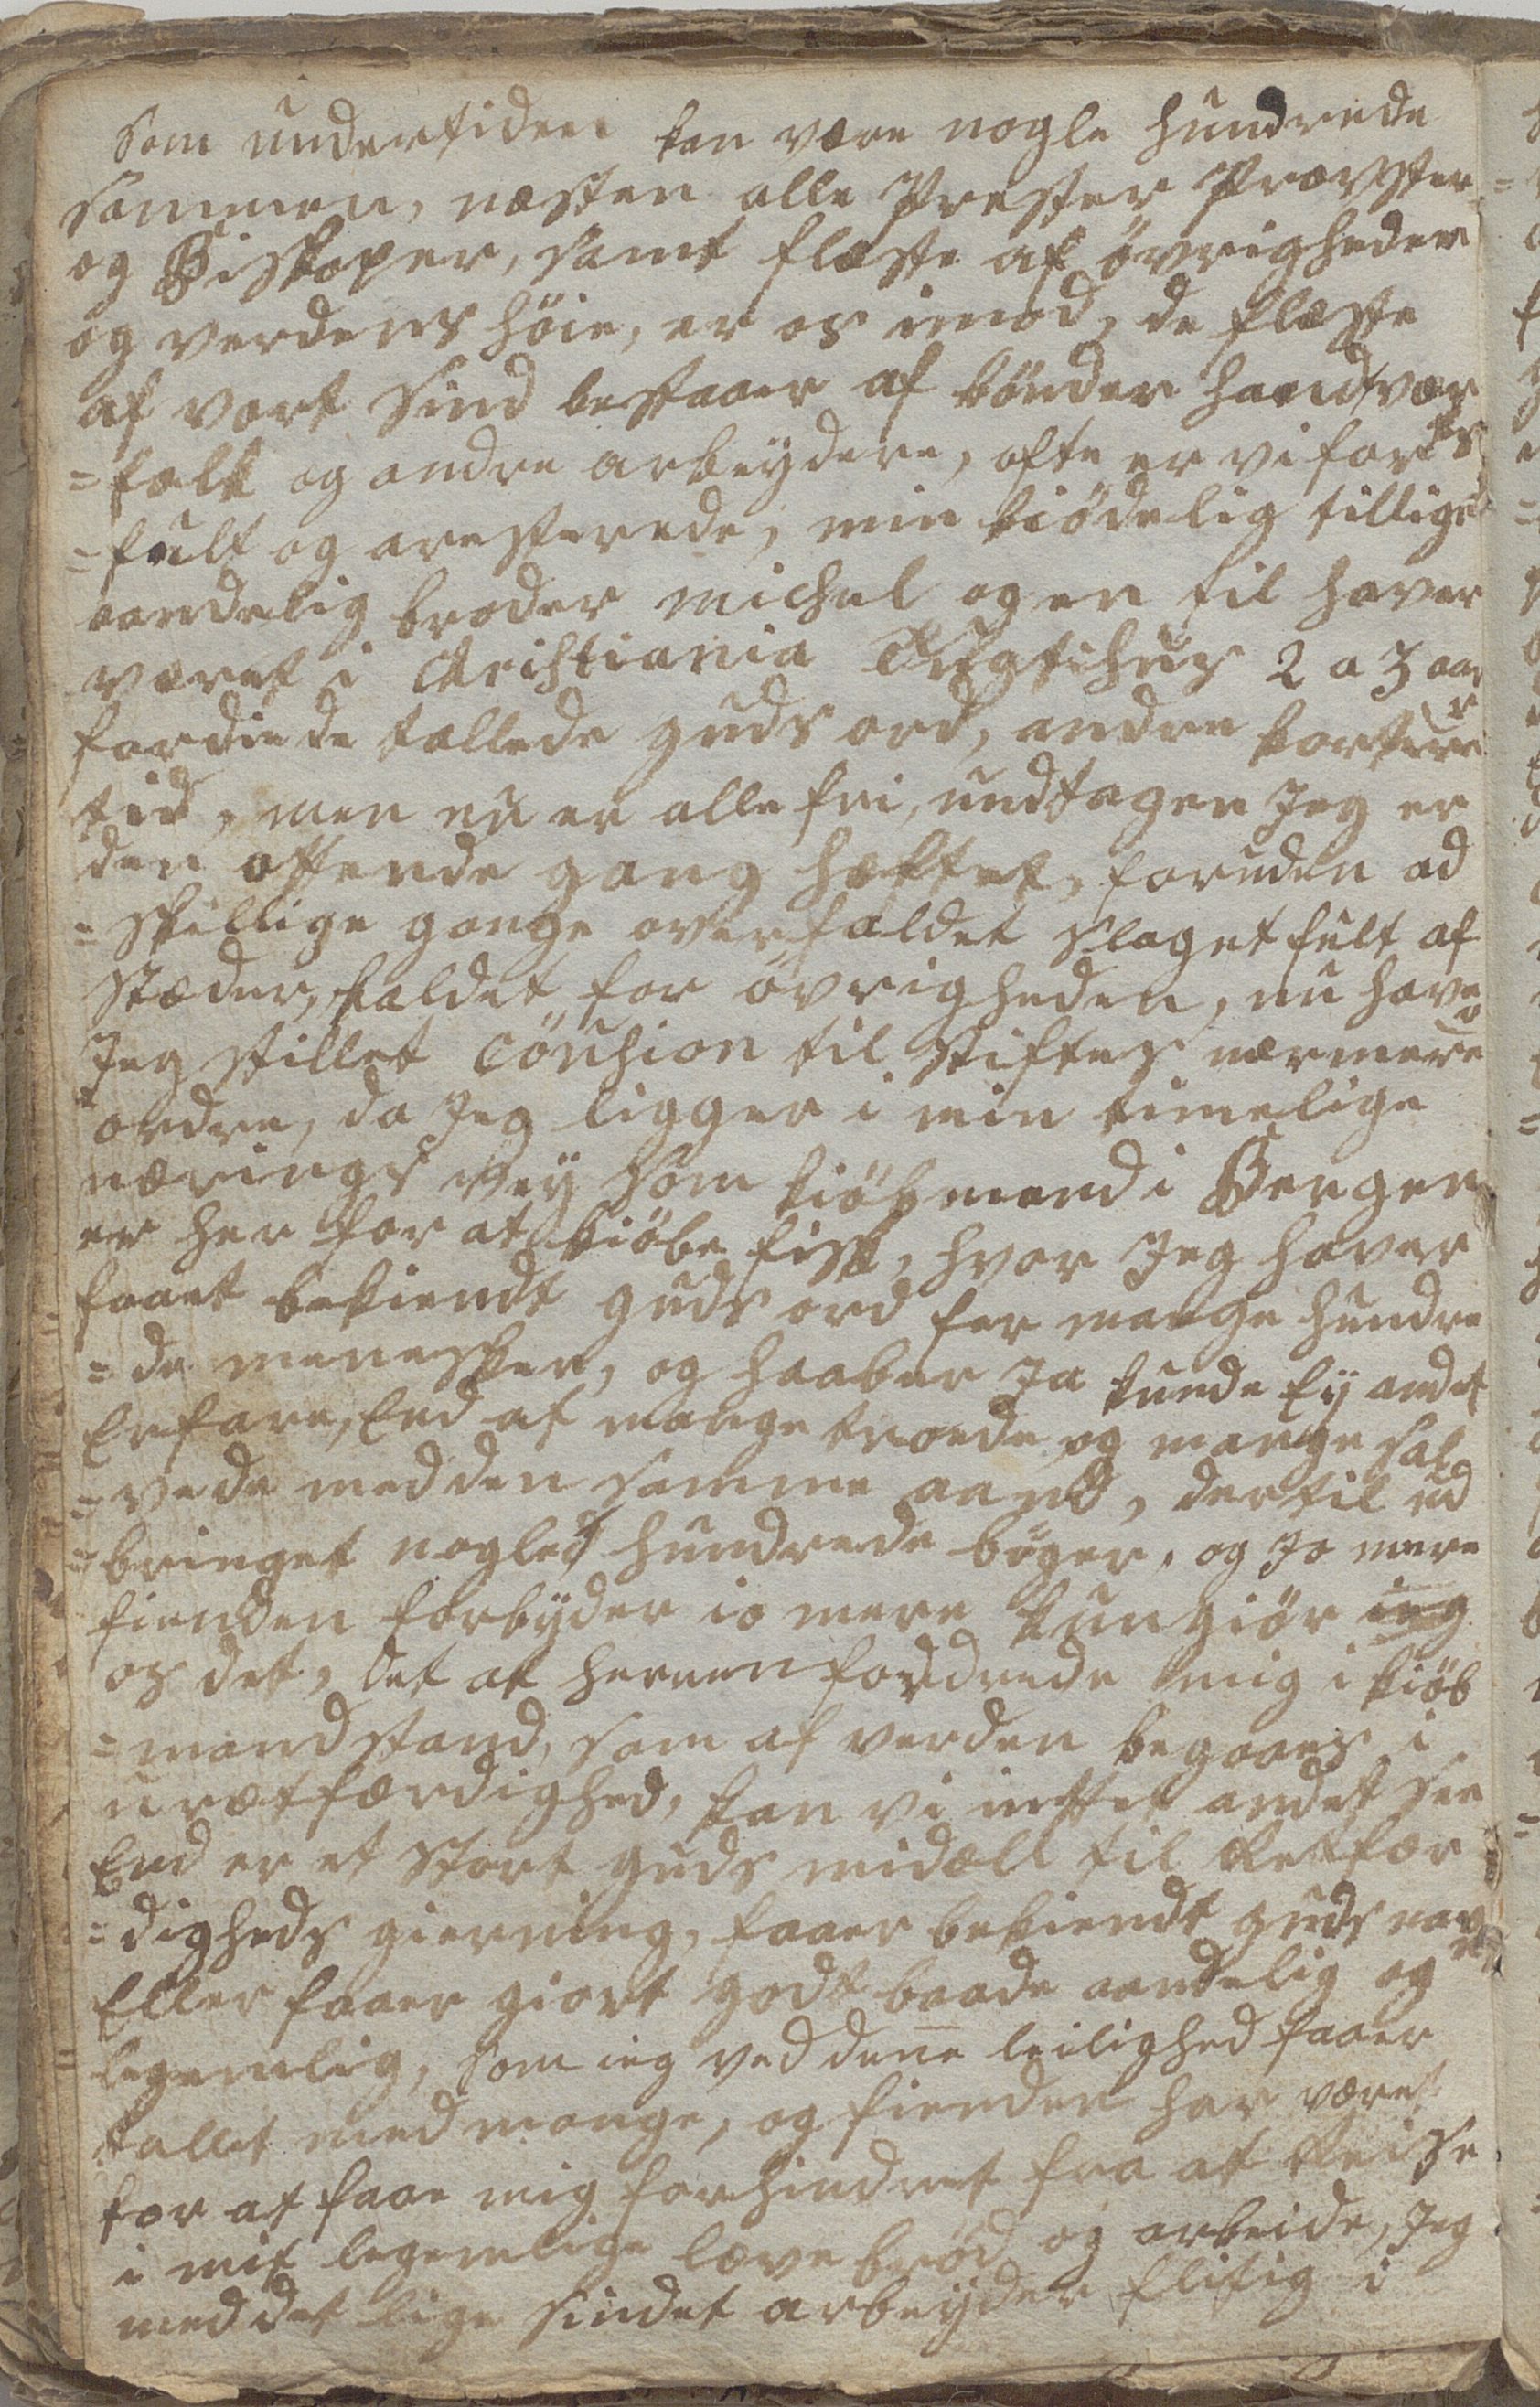 som undertiden kan være nogle hundrede
sammen, næsten alle Prester Provster
og Biskoper, samt fleste af övrigheder
og verdens höie, er os imod, de fleste
af vort sind bestaaer af bönder handtver
=folk og andre arbeydere, ofte er vi forks
=fult og aresterede, min kiödelig tillige
aandelig broder Michel og en til haver
været i Christiania Tugthus 2 a 3 aar
fordi de tallede guds ord, andre kortere
tid, men nu er alle fri, undtagen Jeg er
den ottende gang heftet, foruden ad
=skillige gange overfaldet slaget fult af
stæder, kaldet for övrigheden, nu have
Jeg stillet Couhsion til stiftes nærmere
ordre, da Jeg ligger i min timelige
nærings vey som kiöbmand i Bergen
er her for at kiöbe fisk, hvor Jeg haver
faaet bekiendt guds ord for mange hundre
=de menesker, og haaber Ja kunde Ey andet
Erfare, End at mange troede og mange sal
=vede med den samme aand, dertil ud
=bringet nogled hundrede böger, og Jo mere
fienden forbyder io mere kungiör ieg
os det, det at herren fordrede mig i kiöb
=mand stand, som af verden begaaes i
uretfærdighed, kan vi intet andet see
End er et stort guds midell til Retfær
=digheds gierning, faaer bekiendt guds navn
Eller faaer giort godt baade aandelig og
legemlig, som ieg ved denne leilighed faaer
tallet med mange, og fienden har været
for at faae mig forhindret fra at Reise
i mit legemlige leve bröd og arbeide, Jeg
med det lige sindet arbeyder flitig i